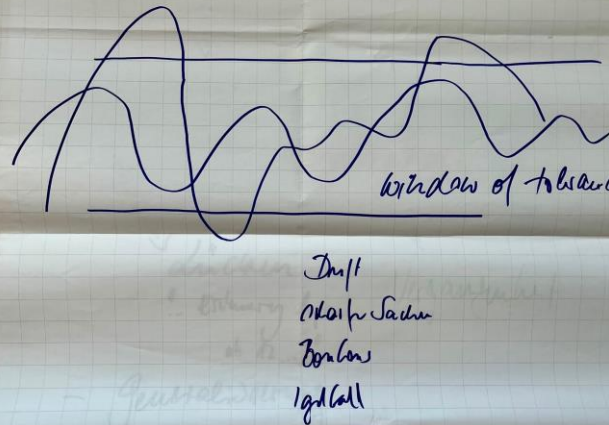 window of tolerance
Duft
scharfe Sachen
Bonbons
Igelball